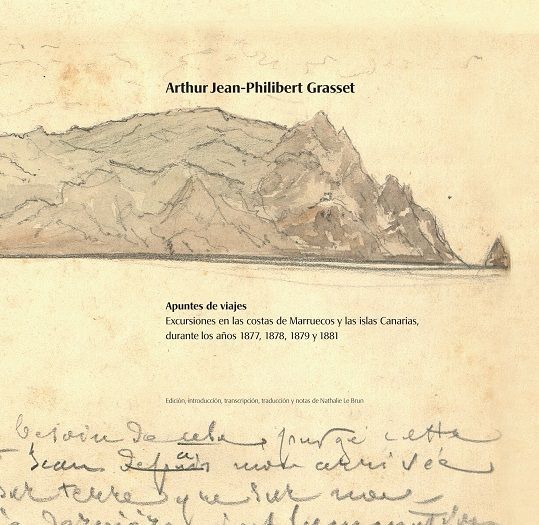 Arthur Jean-Philibert Grasset
Apuntes de viajes
Excursiones en las costas de Marruecos y las islas Canarias,
durante los años 1877, 1878, 1879 y 1881
Edición, introducción, transcripción, traducción y notas de Nathalie Le Brun
besoin de cela, purgé cette
a
depuis mon arrivée
sur terre que sur mer